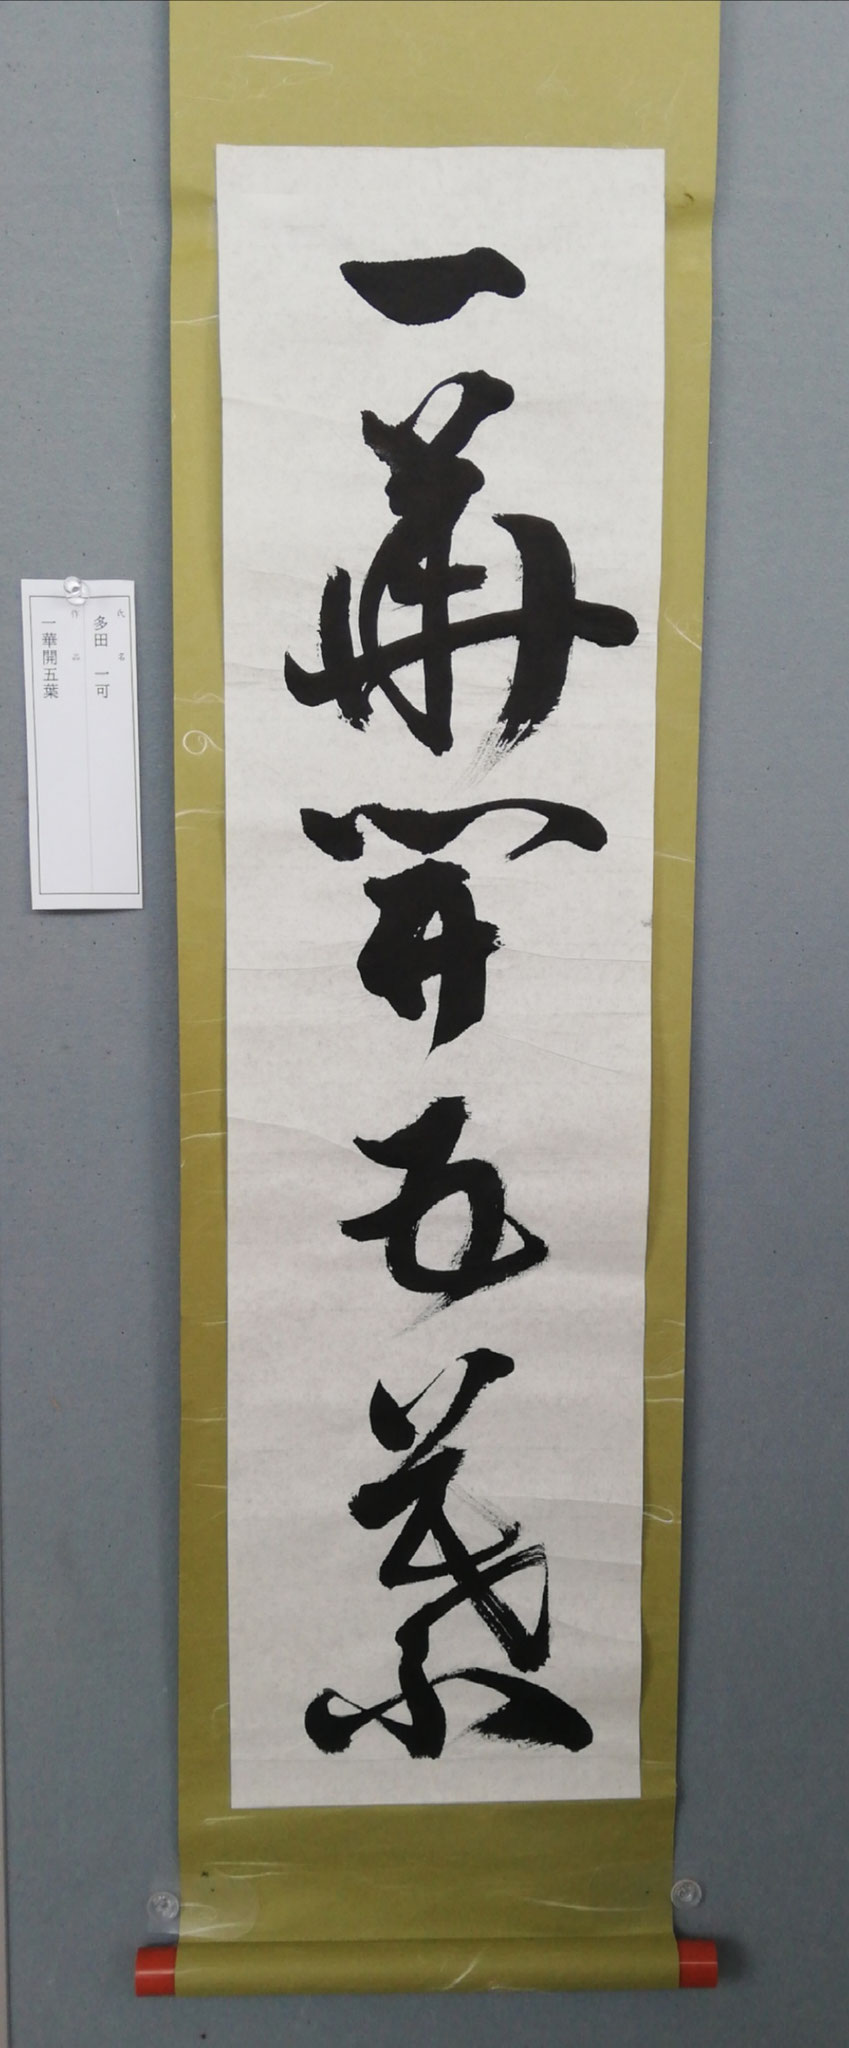 一華開五葉
氏名
多田 一可
作品
一華開五葉